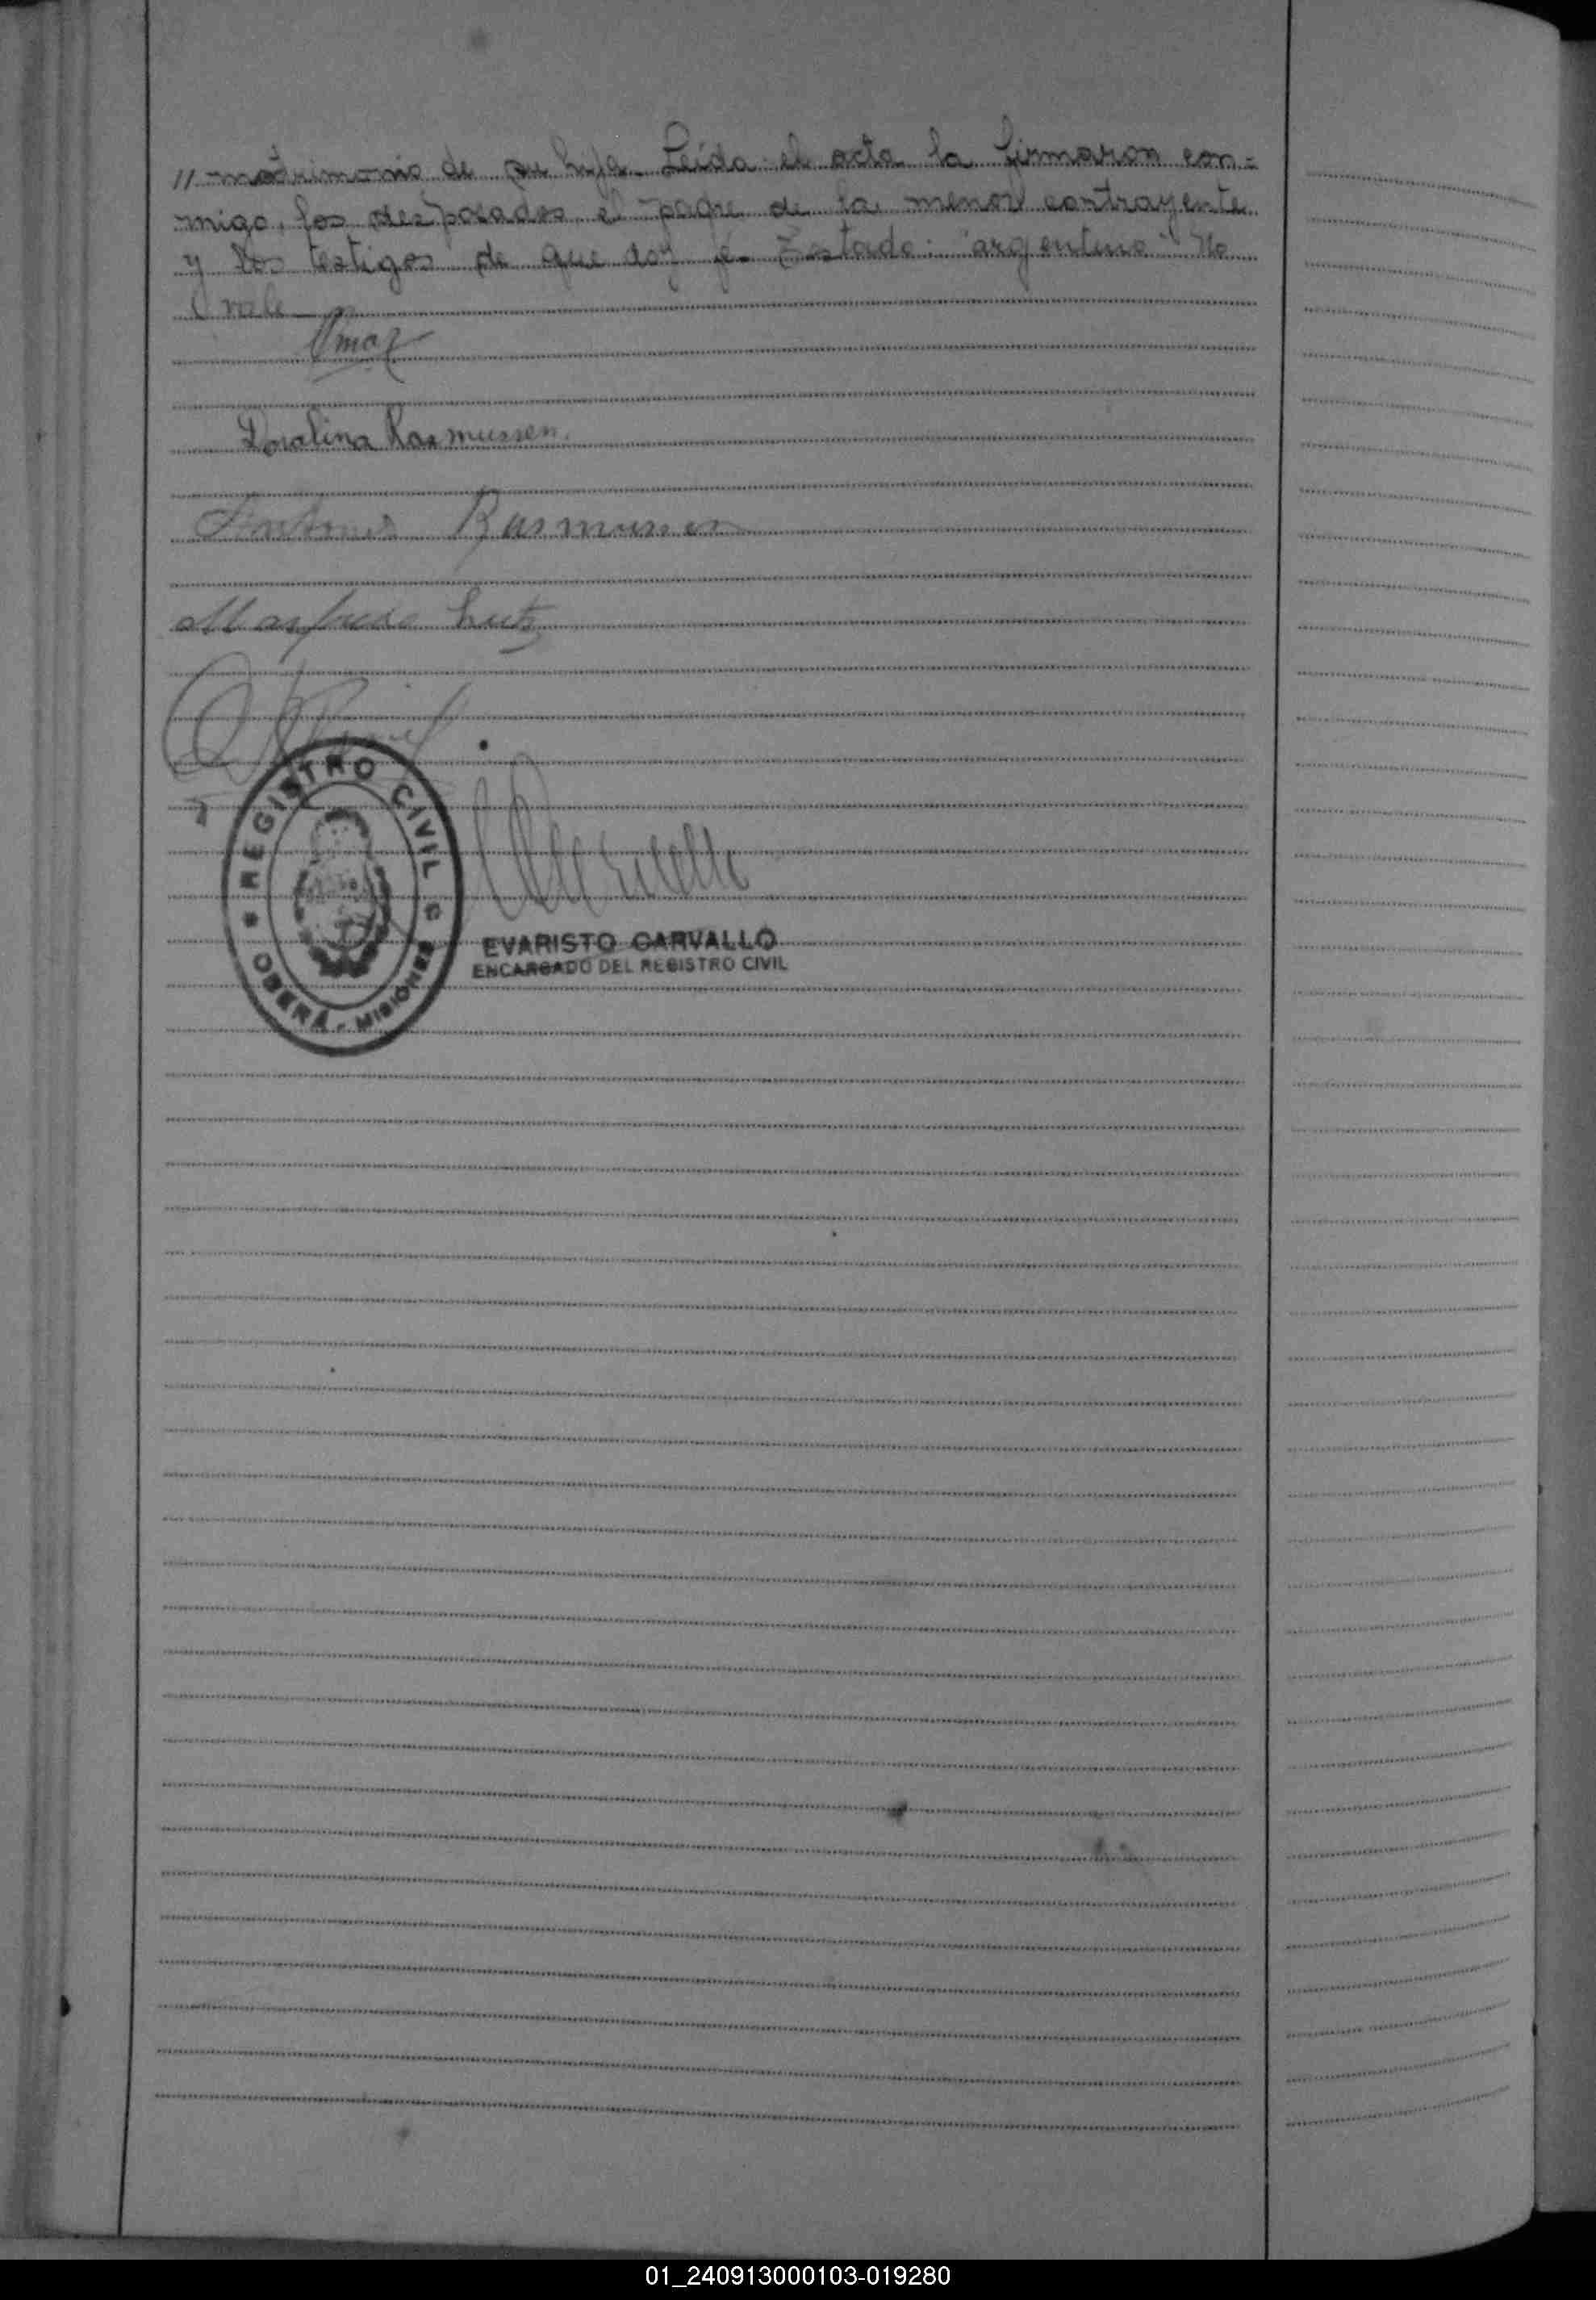 // matrimonio de su hija. Leída el acta la firmaron con=
migo, los desposados, el padre de la menor contrayente
y los testigos de que doy fé. Testado: "argentino" No
vale
Doralina Rasmussen.
Antonio Rasmussen
REGISTRO CIVIL
OBERÁ - MISIONES
EVARISTO CARVALLO
ENCARGADO DEL REGISTRO CIVIL
01_240913000103-019280